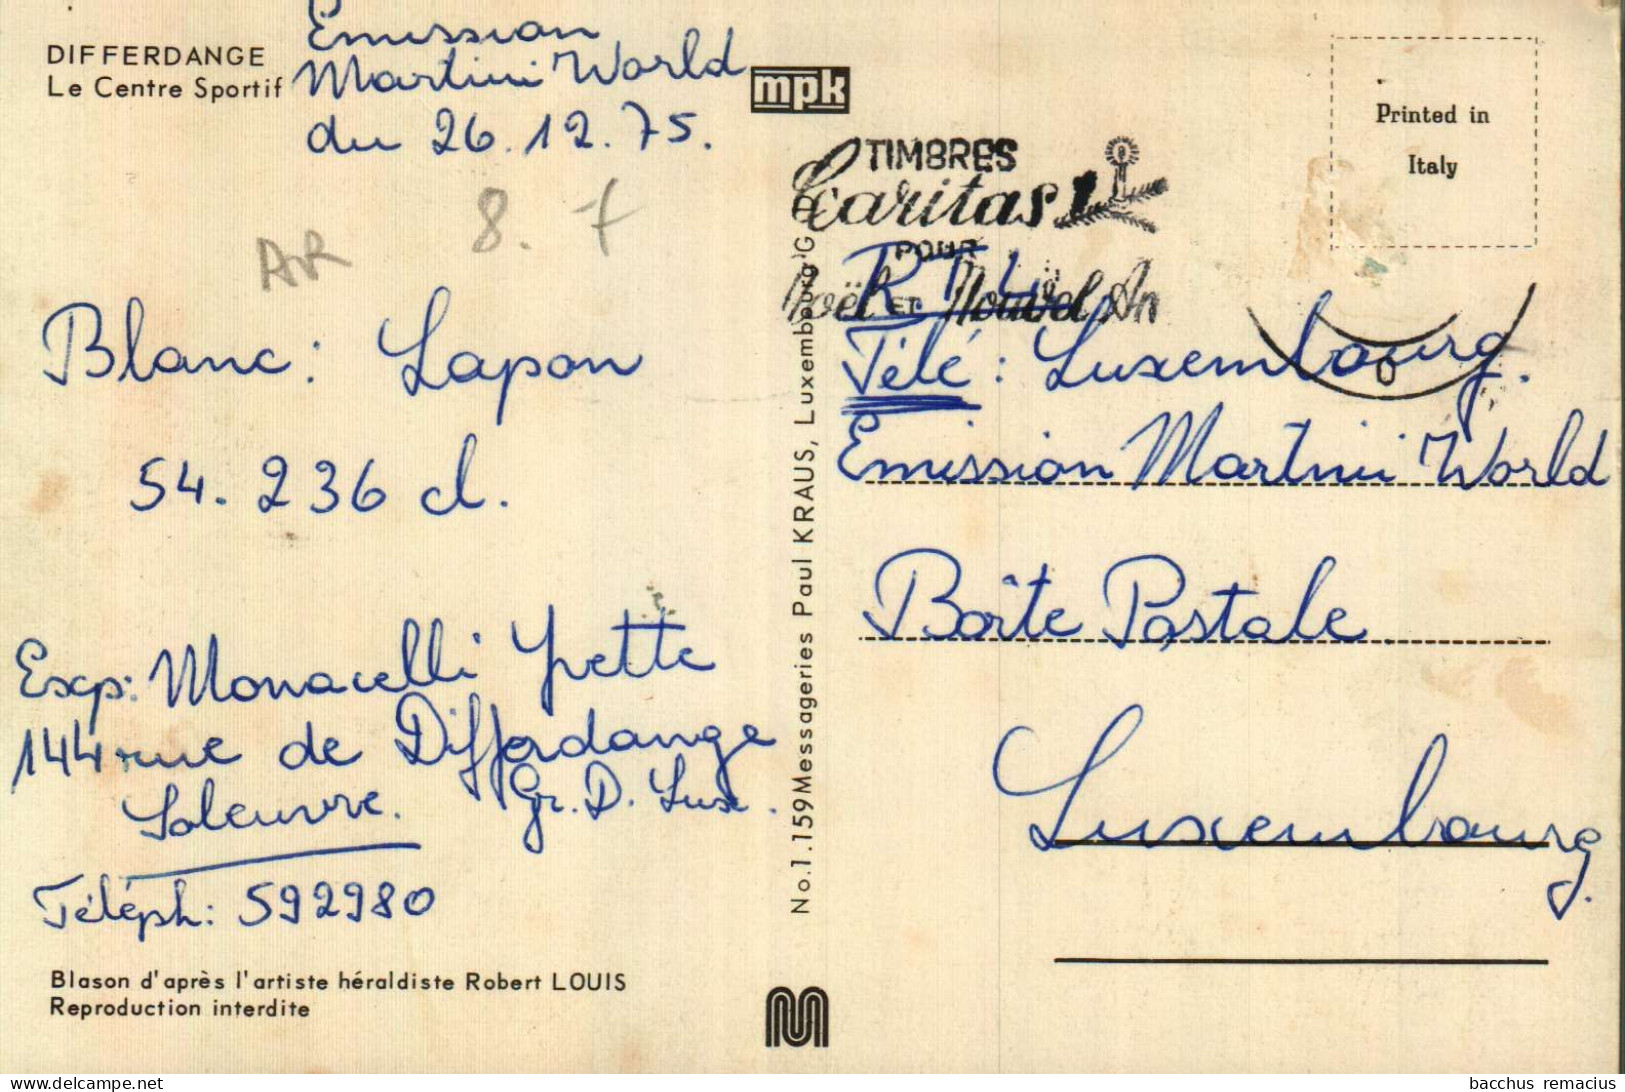 DIFFERDANGE
Le Centre Sportif
Emission
Martini World
du 26.12.75.
8. 7
AR
Blanc: Lapon
54.236 cl.
Exp: Monacelli Yvette
144 rue de Differdange
Soleuvre. Gr. D. Lux.
Téléph: 592980
Blason d'après l'artiste héraldiste Robert LOUIS
Reproduction interdite
mpk
No.1.159 Messageries Paul KRAUS, Luxembourg-G.D.
TIMBRES
Caritas
POUR
Noël ET Nouvel An
Printed in
Italy
R.T.L.
Télé: Luxembourg.
Emission Martini World
Boîte Postale
Luxembourg.
bacchus remacius
Delcampe.net